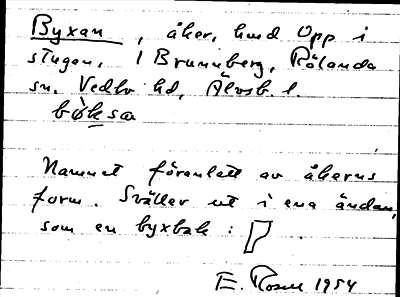 Byxan, åker, hmd Opp i
stugan, 1 Brunnberg, Rölanda
sn. Vedbo hd, Älvsb. l.
bøksa
Namnet föranlett av åkerns
form. Sväller ut i ena ändan,
som en byxbak:
E. Rosell 1954